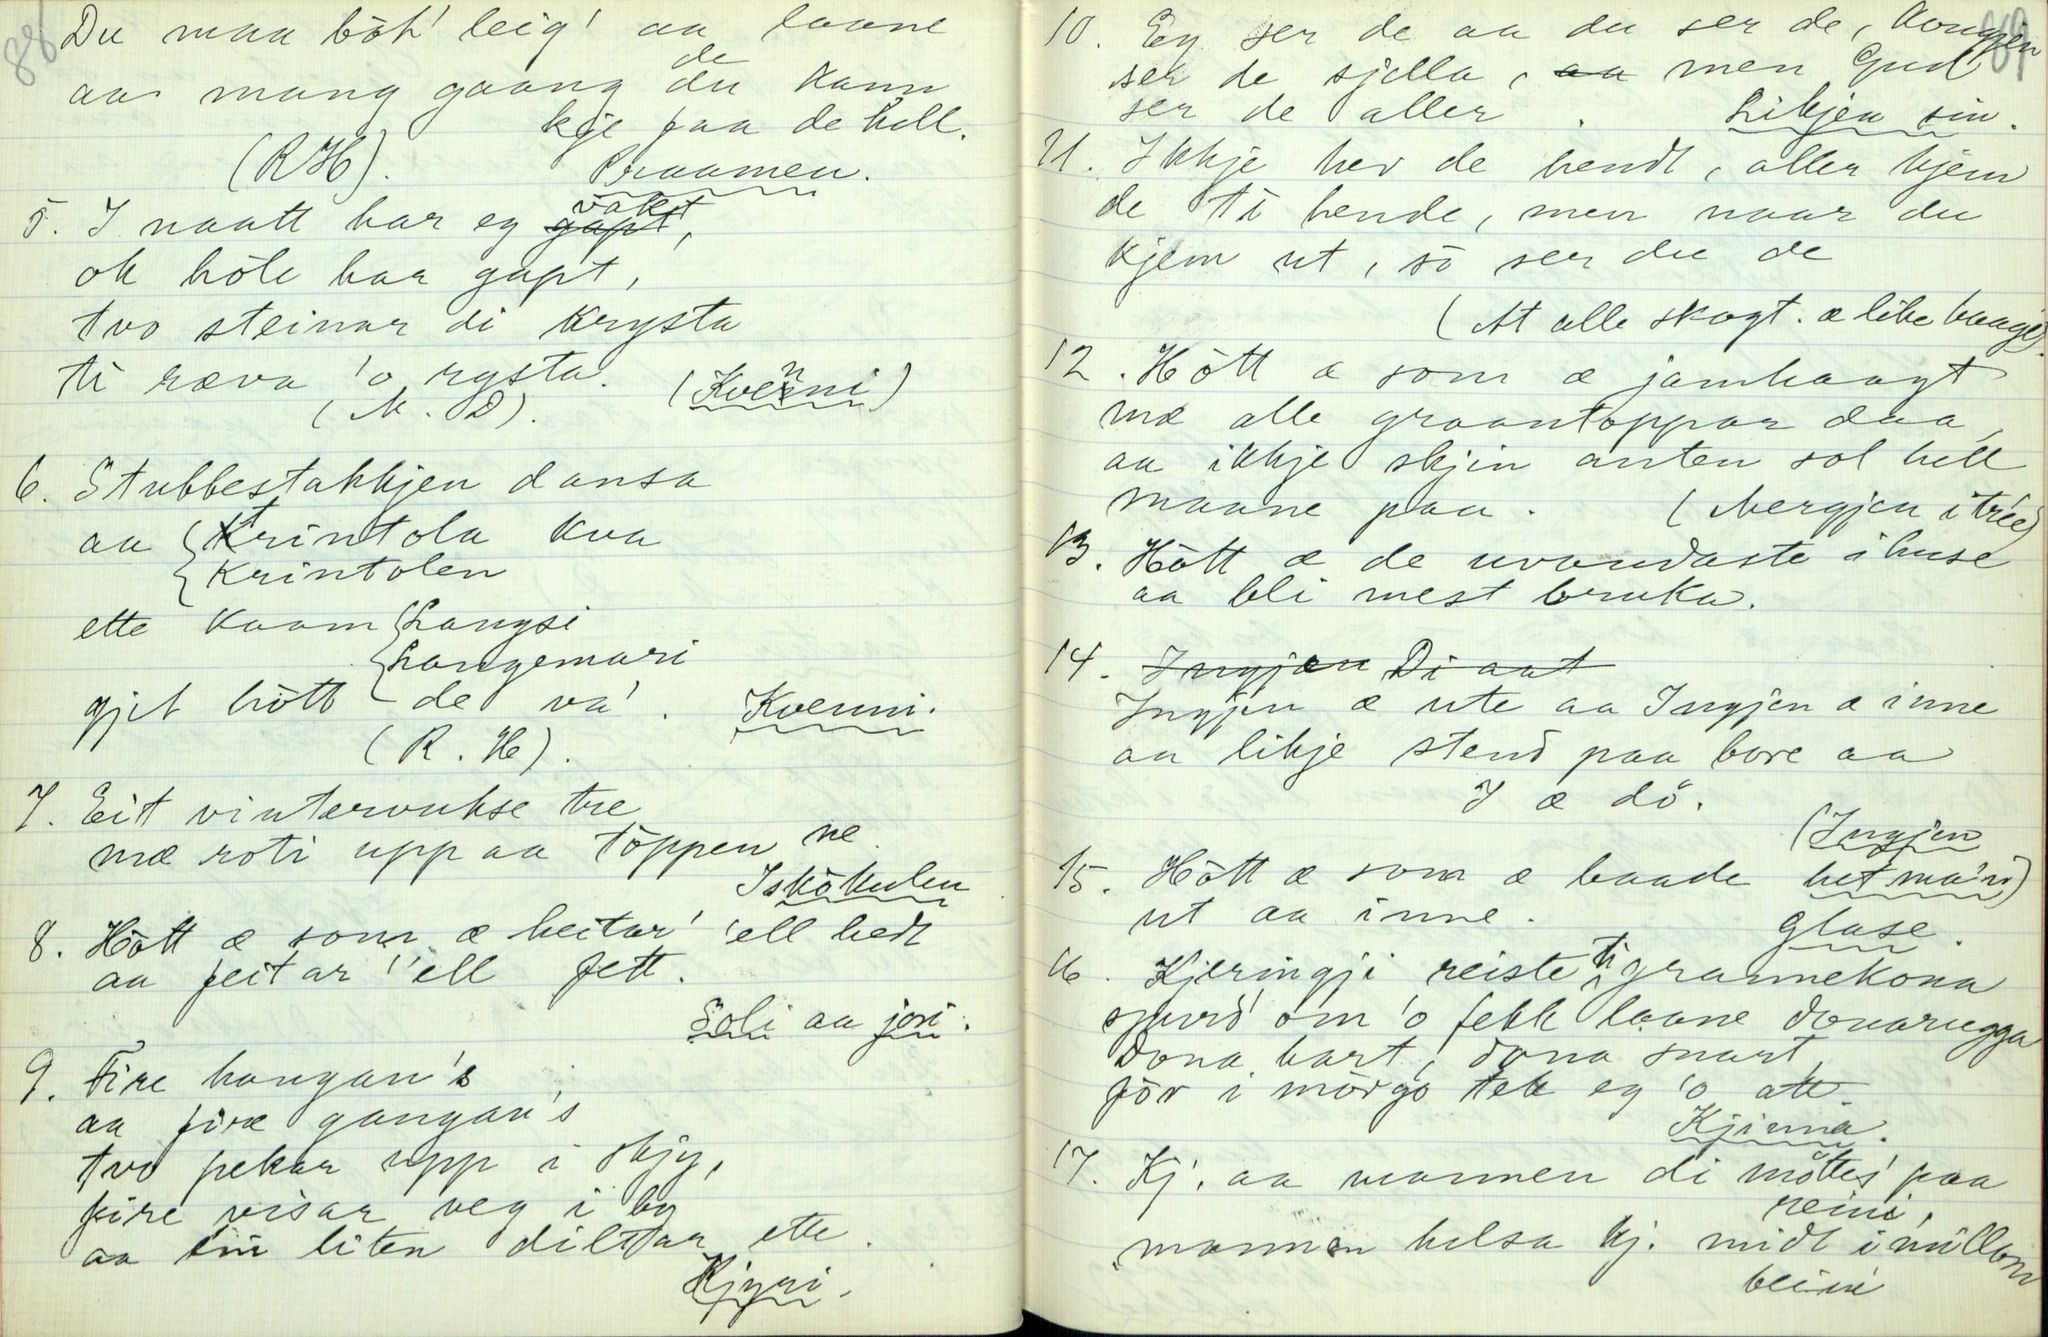 88
Du maa böh' leig' aa laane
aa mang gaang de du kann
kje faa de hell.
(R H). Praamen.
5. I naatt har eg gapt, vakt
ok höle har gapt,
tvo steinar di krysta
ti ræva 'o rysta.
(M. D). (Kvenni)
6. Stubbestakkjen dansa
aa Trintola kva
Krintolen
ette kaam Langsi
Langemari
gjet hött de va'. Kvenni.
(R. H).
7. Eit vintervukse tre
mæ roti upp aa töppen ne.
Isökulen
8. Hött æ som æ heitar' 'ell hedt
aa feitar' 'ell fett.
Soli aa jori.
9. Fire hangan's
aa fire gangan's
tvo pekar upp i skjy,
fire visar veg i by
aa ein liten diltar ette.
Kjyri.
89
10. Eg ser de aa du ser de, kongjen
ser de sjella, aa men Gud
ser de aller. Likjen sin.
11. Ikkje hev de hendt, aller kjem
de ti hende, men naar du
kjem ut, so ser du de
(At alle skogt. æ like haage).
12. Hött æ som æ jamhaagt
mæ alle graantoppar daa,
aa ikkje skjin anten sol hell
maane paa. (Mergjen i tree)
13. Hött æ de uvandaste i huse
aa bli mest bruka.
14. Ingjen Di aat
Ingjen æ ute aa Ingjen æ inne
aa likje stend paa bore aa
I æ dö.
(Ingjen
het ma'n)
15. Hött æ som æ baade
ut aa inne. Glase.
16. Kjeringji reiste ti grannekona
spurd' om 'o fekk laane donarugga
Dona hart, dona snart,
för i mörgo tek eg 'o att.
Kjinna.
17. Kj. aa mannen di möttes' paa
reini,
mannen helsa kj. midt imillom
beini